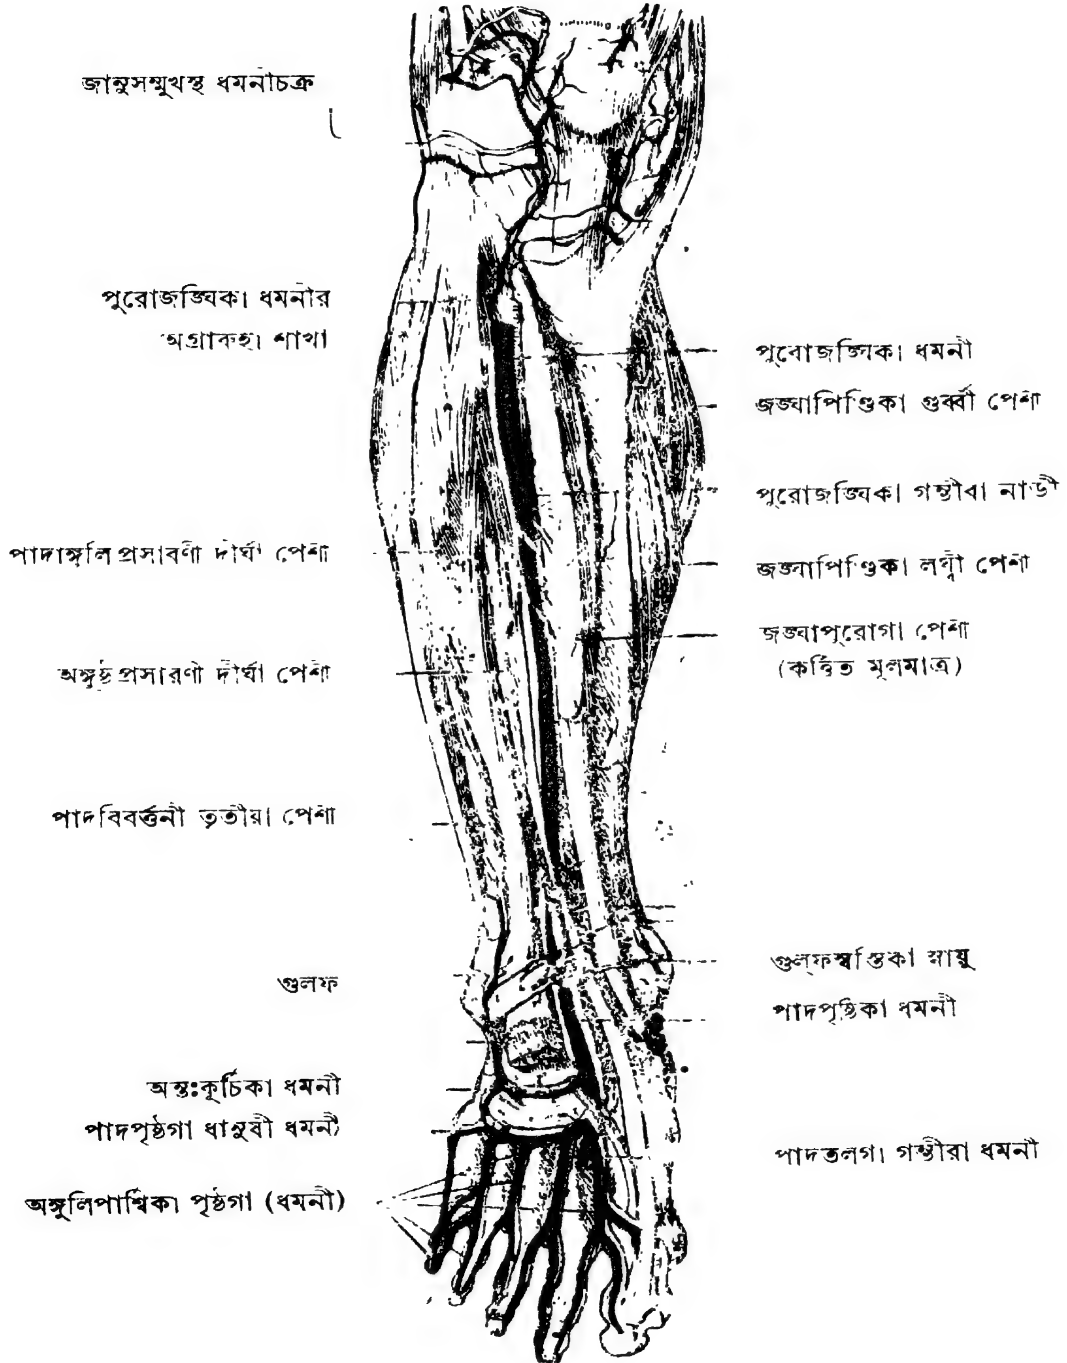 জানুসম্মুখস্থ ধমনীচক্র
পুরোজঙ্ঘিকা ধমনীর
শাখা
পাদাঙ্গুলি প্রসাবণী দীর্ঘা পেশী
অঙ্গুষ্ঠ প্রসারণী দীর্ঘা পেশী
পাদবিবর্ত্তনী তৃতীয়া পেশী
গুলফ
অন্তঃকূর্চিকা ধমনী
পাদপৃষ্ঠগা ধানুষী ধমনী
অঙ্গুলিপার্শ্বিকা পৃষ্ঠগা (ধমনী)
পুবোজঙ্ঘিকা ধমনী
জঙ্ঘাপিণ্ডিকা গুর্ব্বী পেশী
পুরোজঙ্ঘিকা গম্ভীবা নাডী
জঙ্ঘাপিণ্ডিকা লঘ্বী পেশী
জঙ্ঘাপুরোগা পেশী
(কর্ত্তিত মূলমাত্র)
গুল্ফস্বস্তিকা স্নায়ু
পাদপৃষ্ঠিকা ধমনী
পাদতলগা গম্ভীরা ধমনী